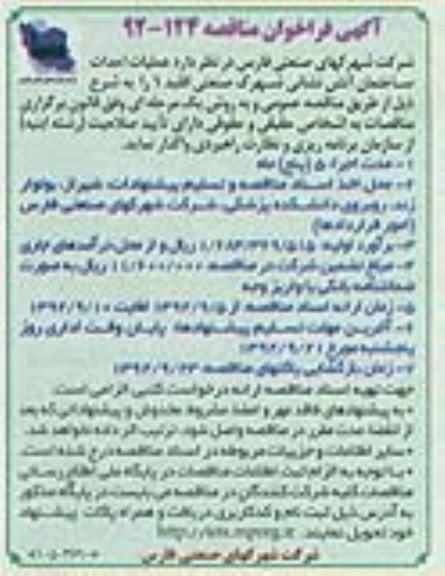 آگهی فراخوان مناقصه ۱۲۴-۹۲
شرکت شهرکهای صنعتی فارس در نظر دارد عملیات احداث
ساختمان آتش نشانی شهرک صنعتی اقلید ۱ را به شرح
ذیل از طریق مناقصه عمومی و به روش یک مرحله ای وفق قانون برگزاری
مناقصات به اشخاص حقیقی و حقوقی دارای تأیید صلاحیت (رشته ابنیه)
از سازمان برنامه ریزی و نظارت راهبردی واگذار نماید.
۱- مدت اجرا: ۵ (پنج) ماه
۲- محل اخذ اسناد مناقصه و تسلیم پیشنهادات: شیراز، بولوار
زند، روبروی دانشکده پزشکی، شرکت شهرکهای صنعتی فارس
(امور قراردادها)
۳- برآورد اولیه: ریال و از محل درآمدهای جاری
۴- مبلغ تضمین شرکت در مناقصه: ریال به صورت
ضمانتنامه بانکی یا واریز وجه
۵- زمان ارائه اسناد مناقصه: از ۱۳۹۲/۹/۵ لغایت ۱۳۹۲/۹/۱۰
۶- آخرین مهلت تسلیم پیشنهادها: پایان وقت اداری روز
پنجشنبه مورخ ۱۳۹۲/۹/۲۱
۷- زمان بازگشایی پاکتهای مناقصه: ۱۳۹۲/۹/۲۳
جهت تهیه اسناد مناقصه ارائه درخواست کتبی الزامی است.
• به پیشنهادهای فاقد مهر و امضا، مشروط، مخدوش و پیشنهاداتی که بعد
از انقضا مدت مقرر در مناقصه واصل شود، ترتیب اثر داده نخواهد شد.
• سایر اطلاعات و جزییات مربوطه در اسناد مناقصه درج شده است.
• با توجه به الزام ثبت اطلاعات مناقصات در پایگاه ملی اطلاع رسانی
مناقصات، کلیه شرکت کنندگان در مناقصه می بایست در پایگاه مذکور
به آدرس ذیل ثبت نام و کد کاربری دریافت و همراه پاکات پیشنهاد
خود تحویل نمایند.
شرکت شهرکهای صنعتی فارس